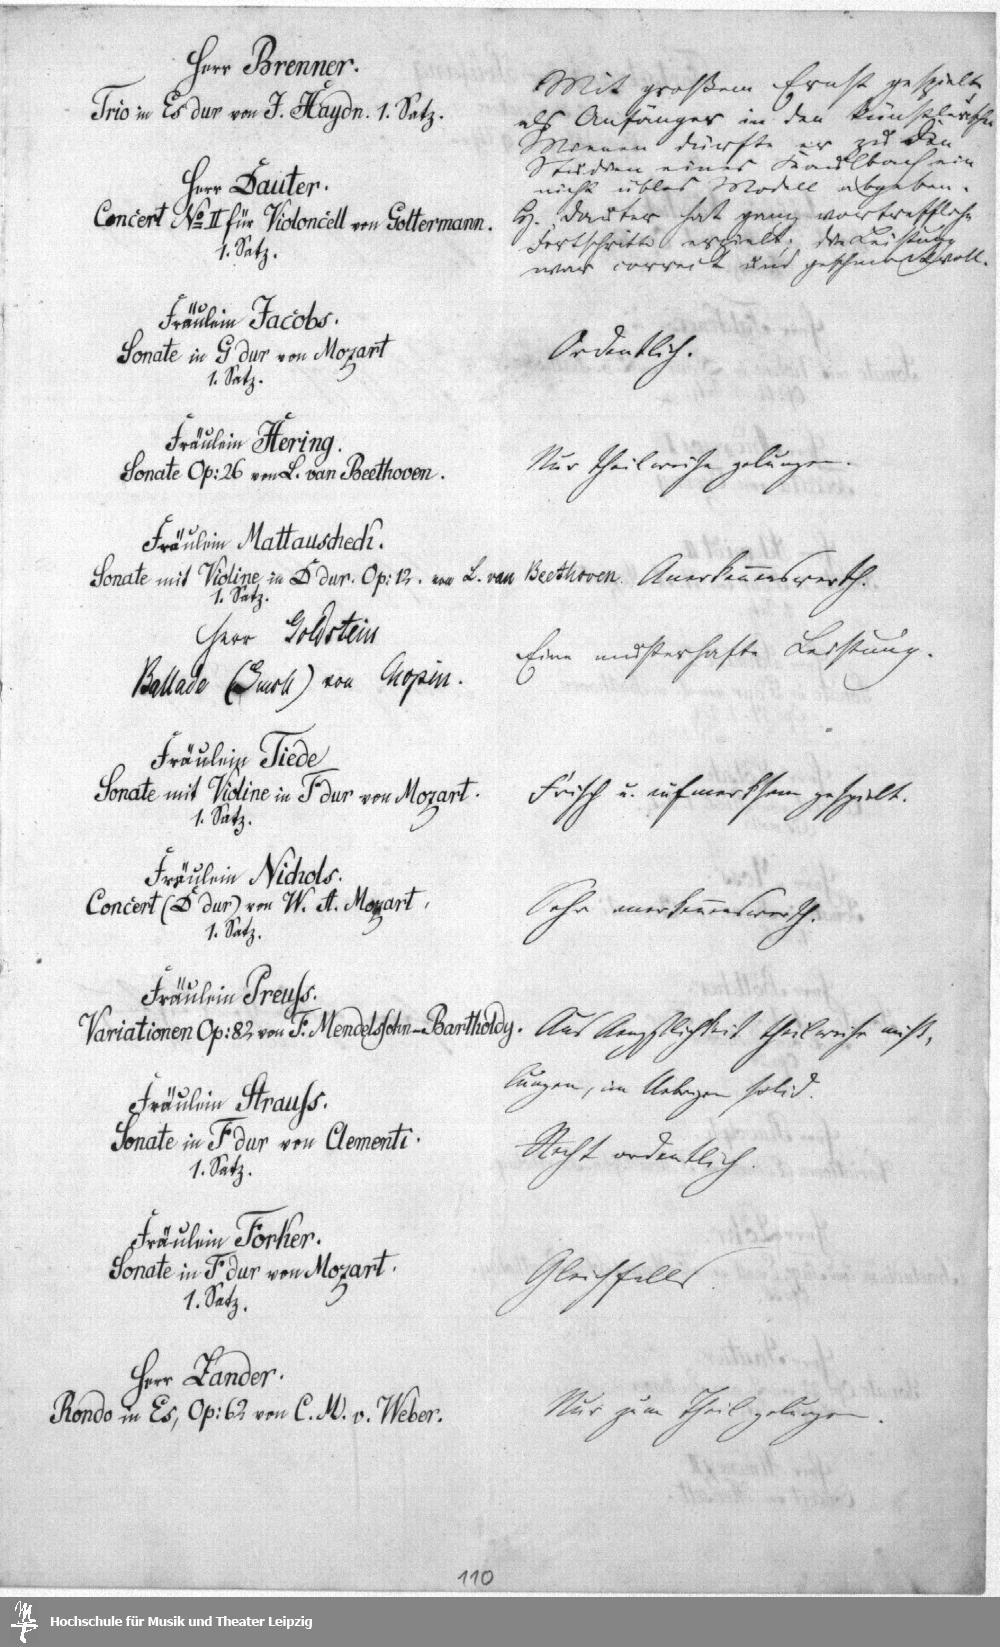 Herr Brenner.
Trio in Es dur von J. Haydn. 1. Satz.
Mit großem Ernst gespielt
als Anfänger in den künstlerischen
dürfte er zu den
Studien eines Kaulbach ein
nicht übles Modell abgeben.
Herr Dauter.
Concert No II für Violoncell von Goltermann.
1. Satz.
H. Dauter hat ganz vortreffliche
Fortschritte erzielt; die Leistung
war correct und geschmackvoll.
Fräulein Jacobs.
Sonate in G dur von Mozart
1. Satz.
Ordentlich.
Fräulein Hering.
Sonate Op: 26 von L. van Beethoven.
Nur theilweise gelungen.
Fräulein Mattauscheck.
Sonate mit Violine in D dur. Op: 12. von L. van Beethoven.
1. Satz.
Anerkennenswerth.
Herr Goldstein
Ballade (Gmoll) von Chopin.
Eine musterhafte Leistung.
Fräulein Tiede
Sonate mit Violine in F dur von Mozart.
1. Satz.
Frisch u. aufmerksam gespielt.
Fräulein Nichols.
Concert (D dur) von W. A. Mozart.
1. Satz.
Sehr anerkennenswerth.
Fräulein Preuss.
Variationen Op: 82 von F. Mendelssohn-Bartholdy.
Aus Aengstlichkeit theilweise miß,
lungen, im Uebrigen solid.
Fräulein Strauss.
Sonate in F dur von Clementi.
1. Satz.
Recht ordentlich.
Fräulein Forker.
Sonate in F dur von Mozart.
1. Satz.
Gleichfalls.
Herr Zander.
Rondo in Es, Op: 62 von C. M. v. Weber.
Nur zum Theil gelungen.
110
Hochschule für Musik und Theater Leipzig